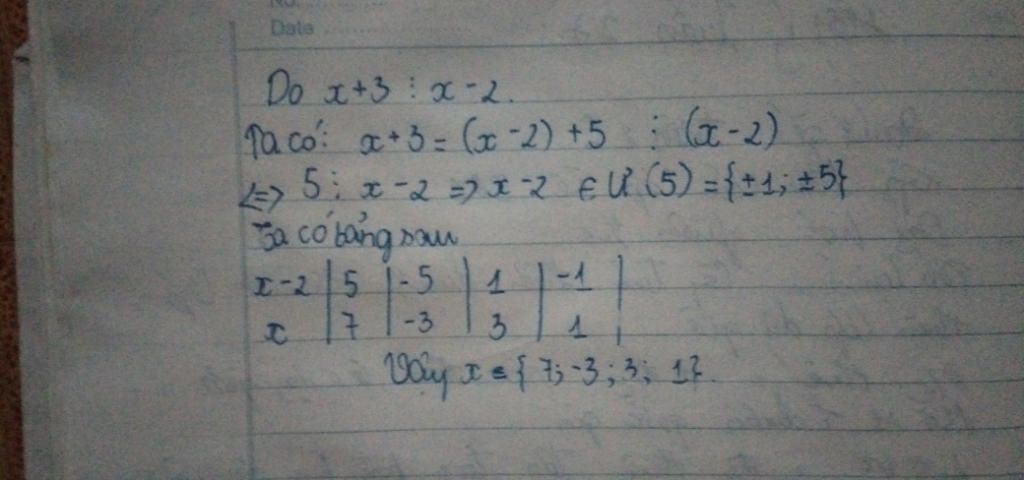 Date
Do x+3 ⋮ x-2.
Ta có: x+3 = (x-2)+5 ⋮ (x-2)
<=> 5 ⋮ x-2 => x-2 ∈ Ư (5) = {±1; ±5}
Ta có bảng sau
x-2 | 5 | -5 | 1 | -1 |
x | 7 | -3 | 3 | 1 |
Vậy x = { 7; -3; 3; 1}.